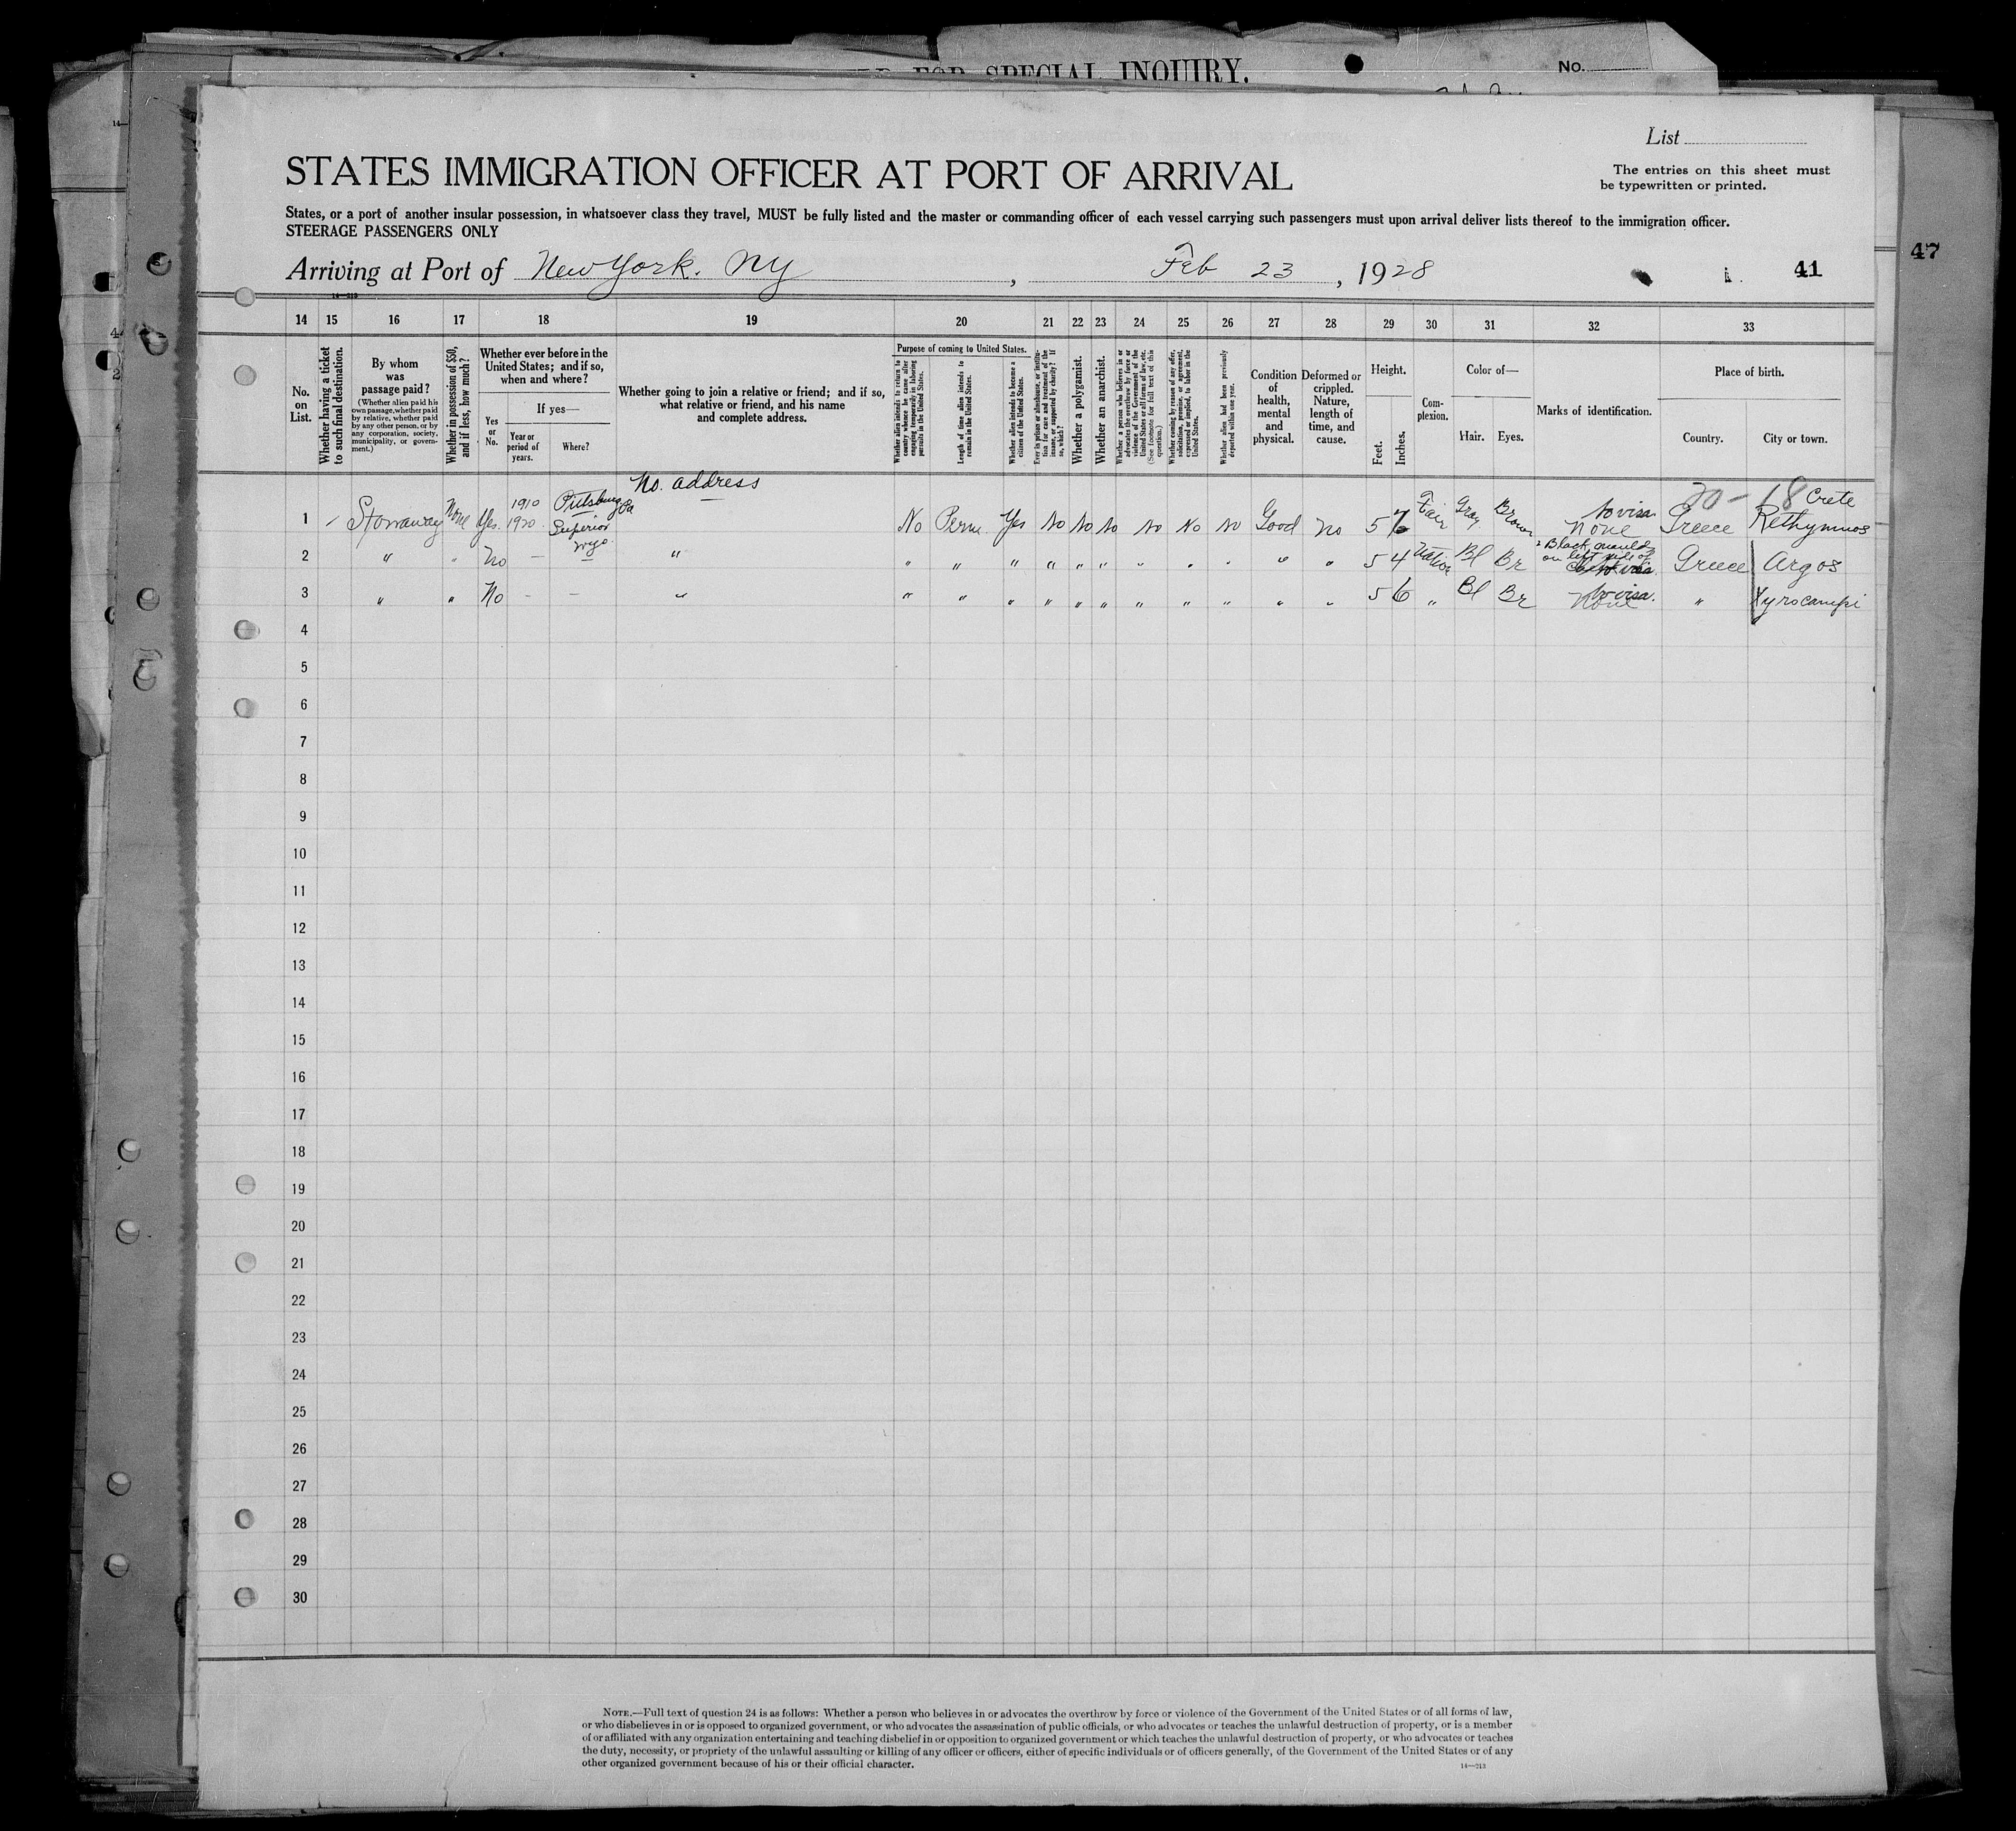 FOR SPECIAL INQUIRY.
No.
List
The entries on this sheet must
be typewritten or printed.
STATES IMMIGRATION OFFICER AT PORT OF ARRIVAL
States, or a port of another insular possession, in whatsoever class they travel, MUST be fully listed and the master or commanding officer of each vessel carrying such passengers must upon arrival deliver lists thereof to the immigration officer.
STEERAGE PASSENGERS ONLY
47
Arriving at Port of New York. NY , Feb 23 , 1928
41
14 15 16 17 18 19 20 21 22 23 24 25 26 27 28 29 30 31 32 33
No.
on
List.
Whether having a ticket
to such final destination.
By whom
was
passage paid?
(Whether alien paid his
own passage, whether paid
by relative, whether paid
by any other person, or by
any corporation, society,
municipality, or govern-
ment.)
Whether in possession of $50,
and if less, how much?
Whether ever before in the
United States; and if so,
when and where?
Yes
or
No.
If yes—
Year or
period of
years.
Where?
Whether going to join a relative or friend; and if so,
what relative or friend, and his name
and complete address.
Purpose of coming to United States.
Whether alien intends to return to
country whence he came after
engaging temporarily in laboring
pursuits in the United States.
Length of time alien intends to
remain in the United States.
Whether alien intends to become a
citizen of the United States.
Ever in prison or almshouse, or institu-
tion for care and treatment of the
insane, or supported by charity? If
so, which?
Whether a polygamist.
Whether an anarchist.
Whether a person who believes in or
advocates the overthrow by force or
violence of the Government of the
United States or all forms of law, etc.
(See footnote for full text of this
question.)
Whether coming by reason of any offer,
solicitation, promise, or agreement,
expressed or implied, to labor in the
United States.
Whether alien had been previously
deported within one year.
Condition
of
health,
mental
and
physical.
Deformed or
crippled.
Nature,
length of
time, and
cause.
Height.
Feet.
Inches.
Com-
plexion.
Color of—
Hair.
Eyes.
Marks of identification.
Place of birth.
Country.
City or town.
No. address
20 - 18 Crete
1910 Pittsburg Pa
No visa
1 Stowaway None Yes. 1920 Superior Wyo. No Perm Yes No No No No No No Good No 5 Fair Gray Brown None Greece Rethymnos
2 " " No — " " " " " " " " " " " " 5 4 Bl Br Greece Argos
on left side of
3 " " No - - " " " " " " " " " " " " 5 6 " Bl Br No visa. None " Xyrocampi
4
5
6
7
8
9
10
11
12
13
14
15
16
17
18
19
20
21
22
23
24
25
26
27
28
29
30
NOTE.—Full text of question 24 is as follows: Whether a person who believes in or advocates the overthrow by force or violence of the Government of the United States or of all forms of law,
or who disbelieves in or is opposed to organized government, or who advocates the assassination of public officials, or who advocates or teaches the unlawful destruction of property, or is a member
of or affiliated with any organization entertaining and teaching disbelief in or opposition to organized government or which teaches the unlawful destruction of property, or who advocates or teaches
the duty, necessity, or propriety of the unlawful assaulting or killing of any officer or officers, either of specific individuals or of officers generally, of the Government of the United States or of any
other organized government because of his or their official character.
14—213